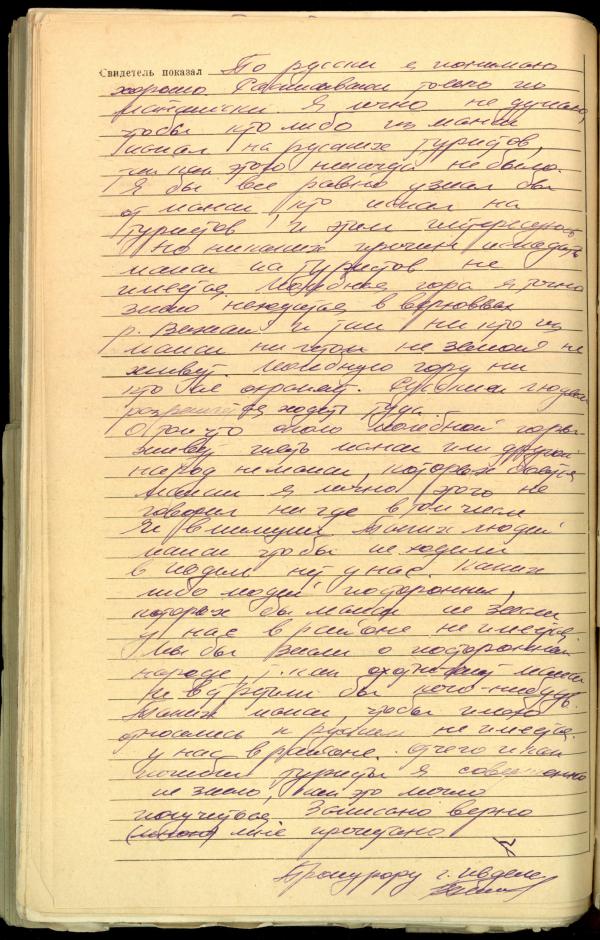 Свидетель показал По русски я понимаю
хорошо Расписываюсь только по
мансийски. Я лично не думаю,
чтобы кто либо из манси
напал на русских туристов,
так как этого никогда не было.
Я бы все равно узнал бы
от манси, кто напал на
туристов и этим интересовался
Но никаких причин нападать
манси на туристов не
имеется. Молебная гора я точно
знаю находится в верховьях
р. Вижай и там ни кто из
манси ни летом не зимой не
живет. Молебную гору ни
кто не охраняет. Русским людям
разрешается ходить туда.
О том что около молебной горы
живут пять манси или другой
народ не манси, которых боятся
манси я лично этого не
говорил ни где в том числе
и в милиции таких людей
манси чтобы не ходили
в Ивдель нет у нас. Каких
либо людей, посторонних,
которых бы манси не знали
у нас в районе не имеется.
Мы бы знали о постороннем
народе, т. как охотники манси
встретили бы кого-нибудь.
Таких манси, чтобы плохо
относились к русским не имеется
у нас в районе. Отчего и как
погибли туристы я совершенно
не знаю, как это могло
получиться. Записано верно
мне прочитано
Прокурору г. Ивделя